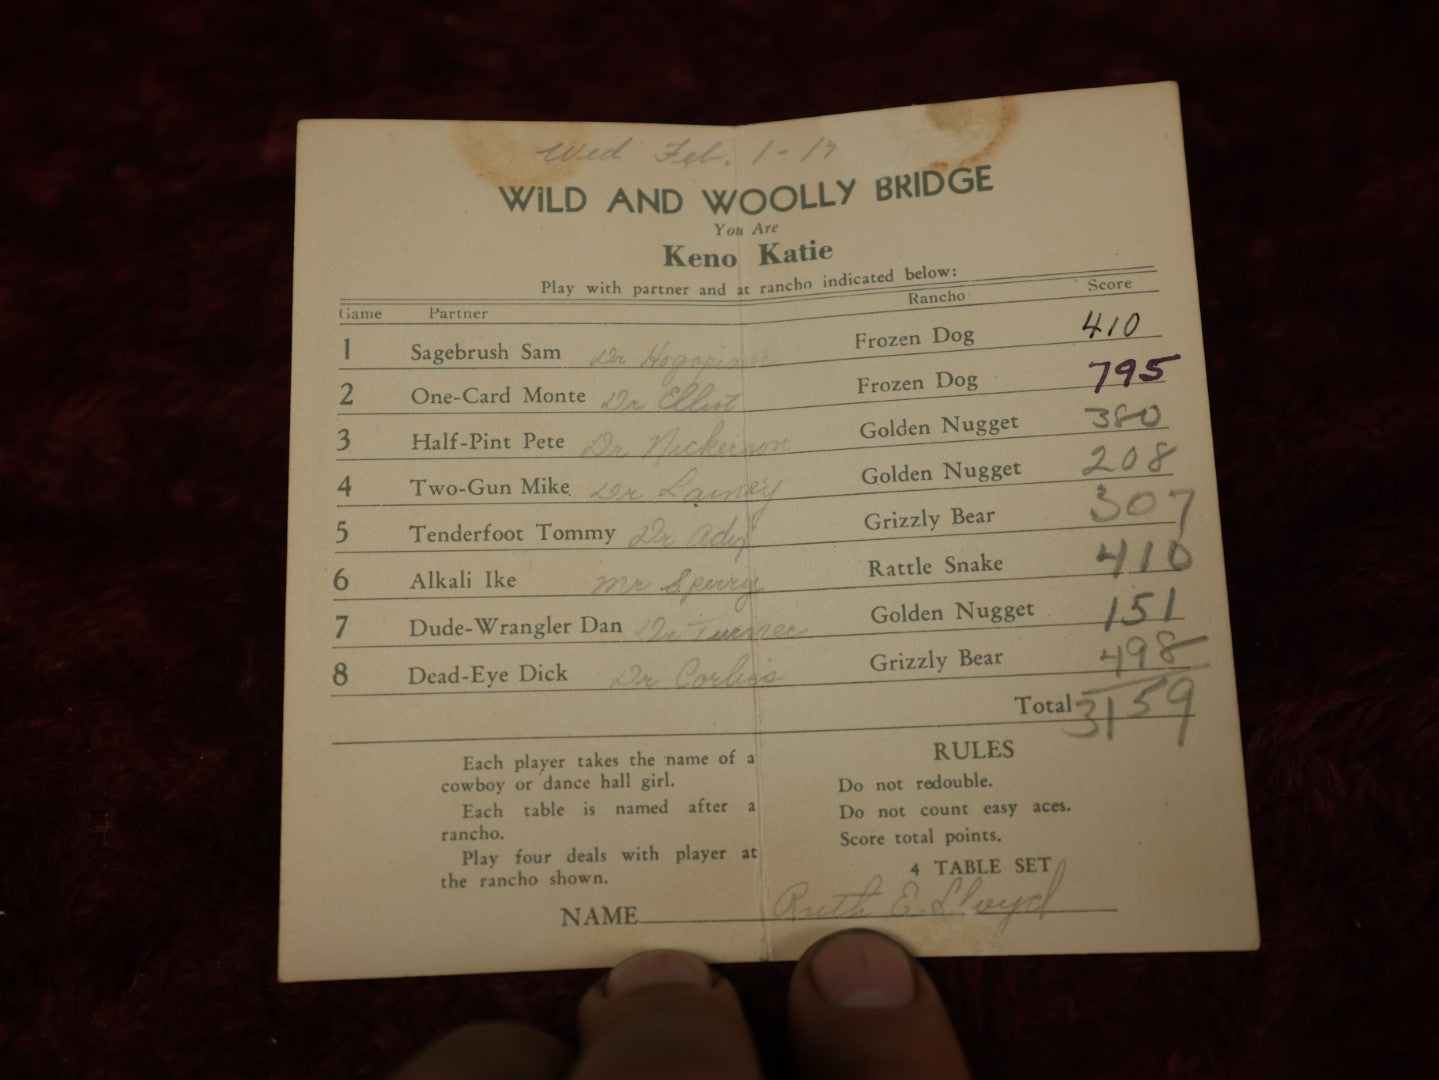 Wed Feb. 1 - 19
WILD AND WOOLLY BRIDGE
You Are
Keno Katie
Play with partner and at rancho indicated below:
Game Partner Rancho Score
1 Sagebrush Sam Dr Hogopian Frozen Dog 410
2 One-Card Monte Dr Elliot Frozen Dog 795
3 Half-Pint Pete Dr Nickerson Golden Nugget 380
4 Two-Gun Mike Dr Lainey Golden Nugget 208
5 Tenderfoot Tommy Dr Grizzly Bear 307
6 Alkali Ike Mr Sperry Rattle Snake 410
7 Dude-Wrangler Dan Dr Turner Golden Nugget 151
8 Dead-Eye Dick Dr Corliss Grizzly Bear 498
Total 3159
Each player takes the name of a
cowboy or dance hall girl.
Each table is named after a
rancho.
Play four deals with player at
the rancho shown.
RULES
Do not redouble.
Do not count easy aces.
Score total points.
4 TABLE SET
NAME Ruth E. Lloyd